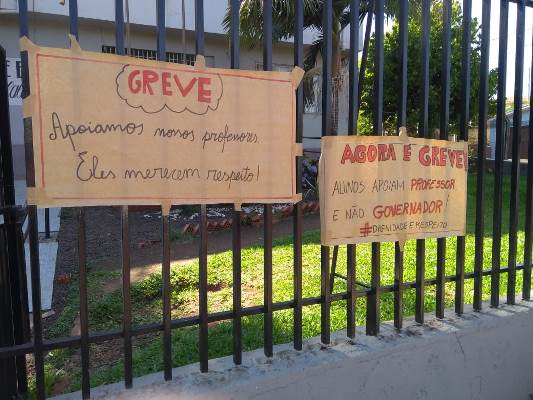 GREVE
Apoiamos nossos professores.
Eles merecem respeito!
AGORA É GREVE!
ALUNOS APOIAM PROFESSOR
E NÃO GOVERNADOR!
#DIGNIDADE E RESPEITO